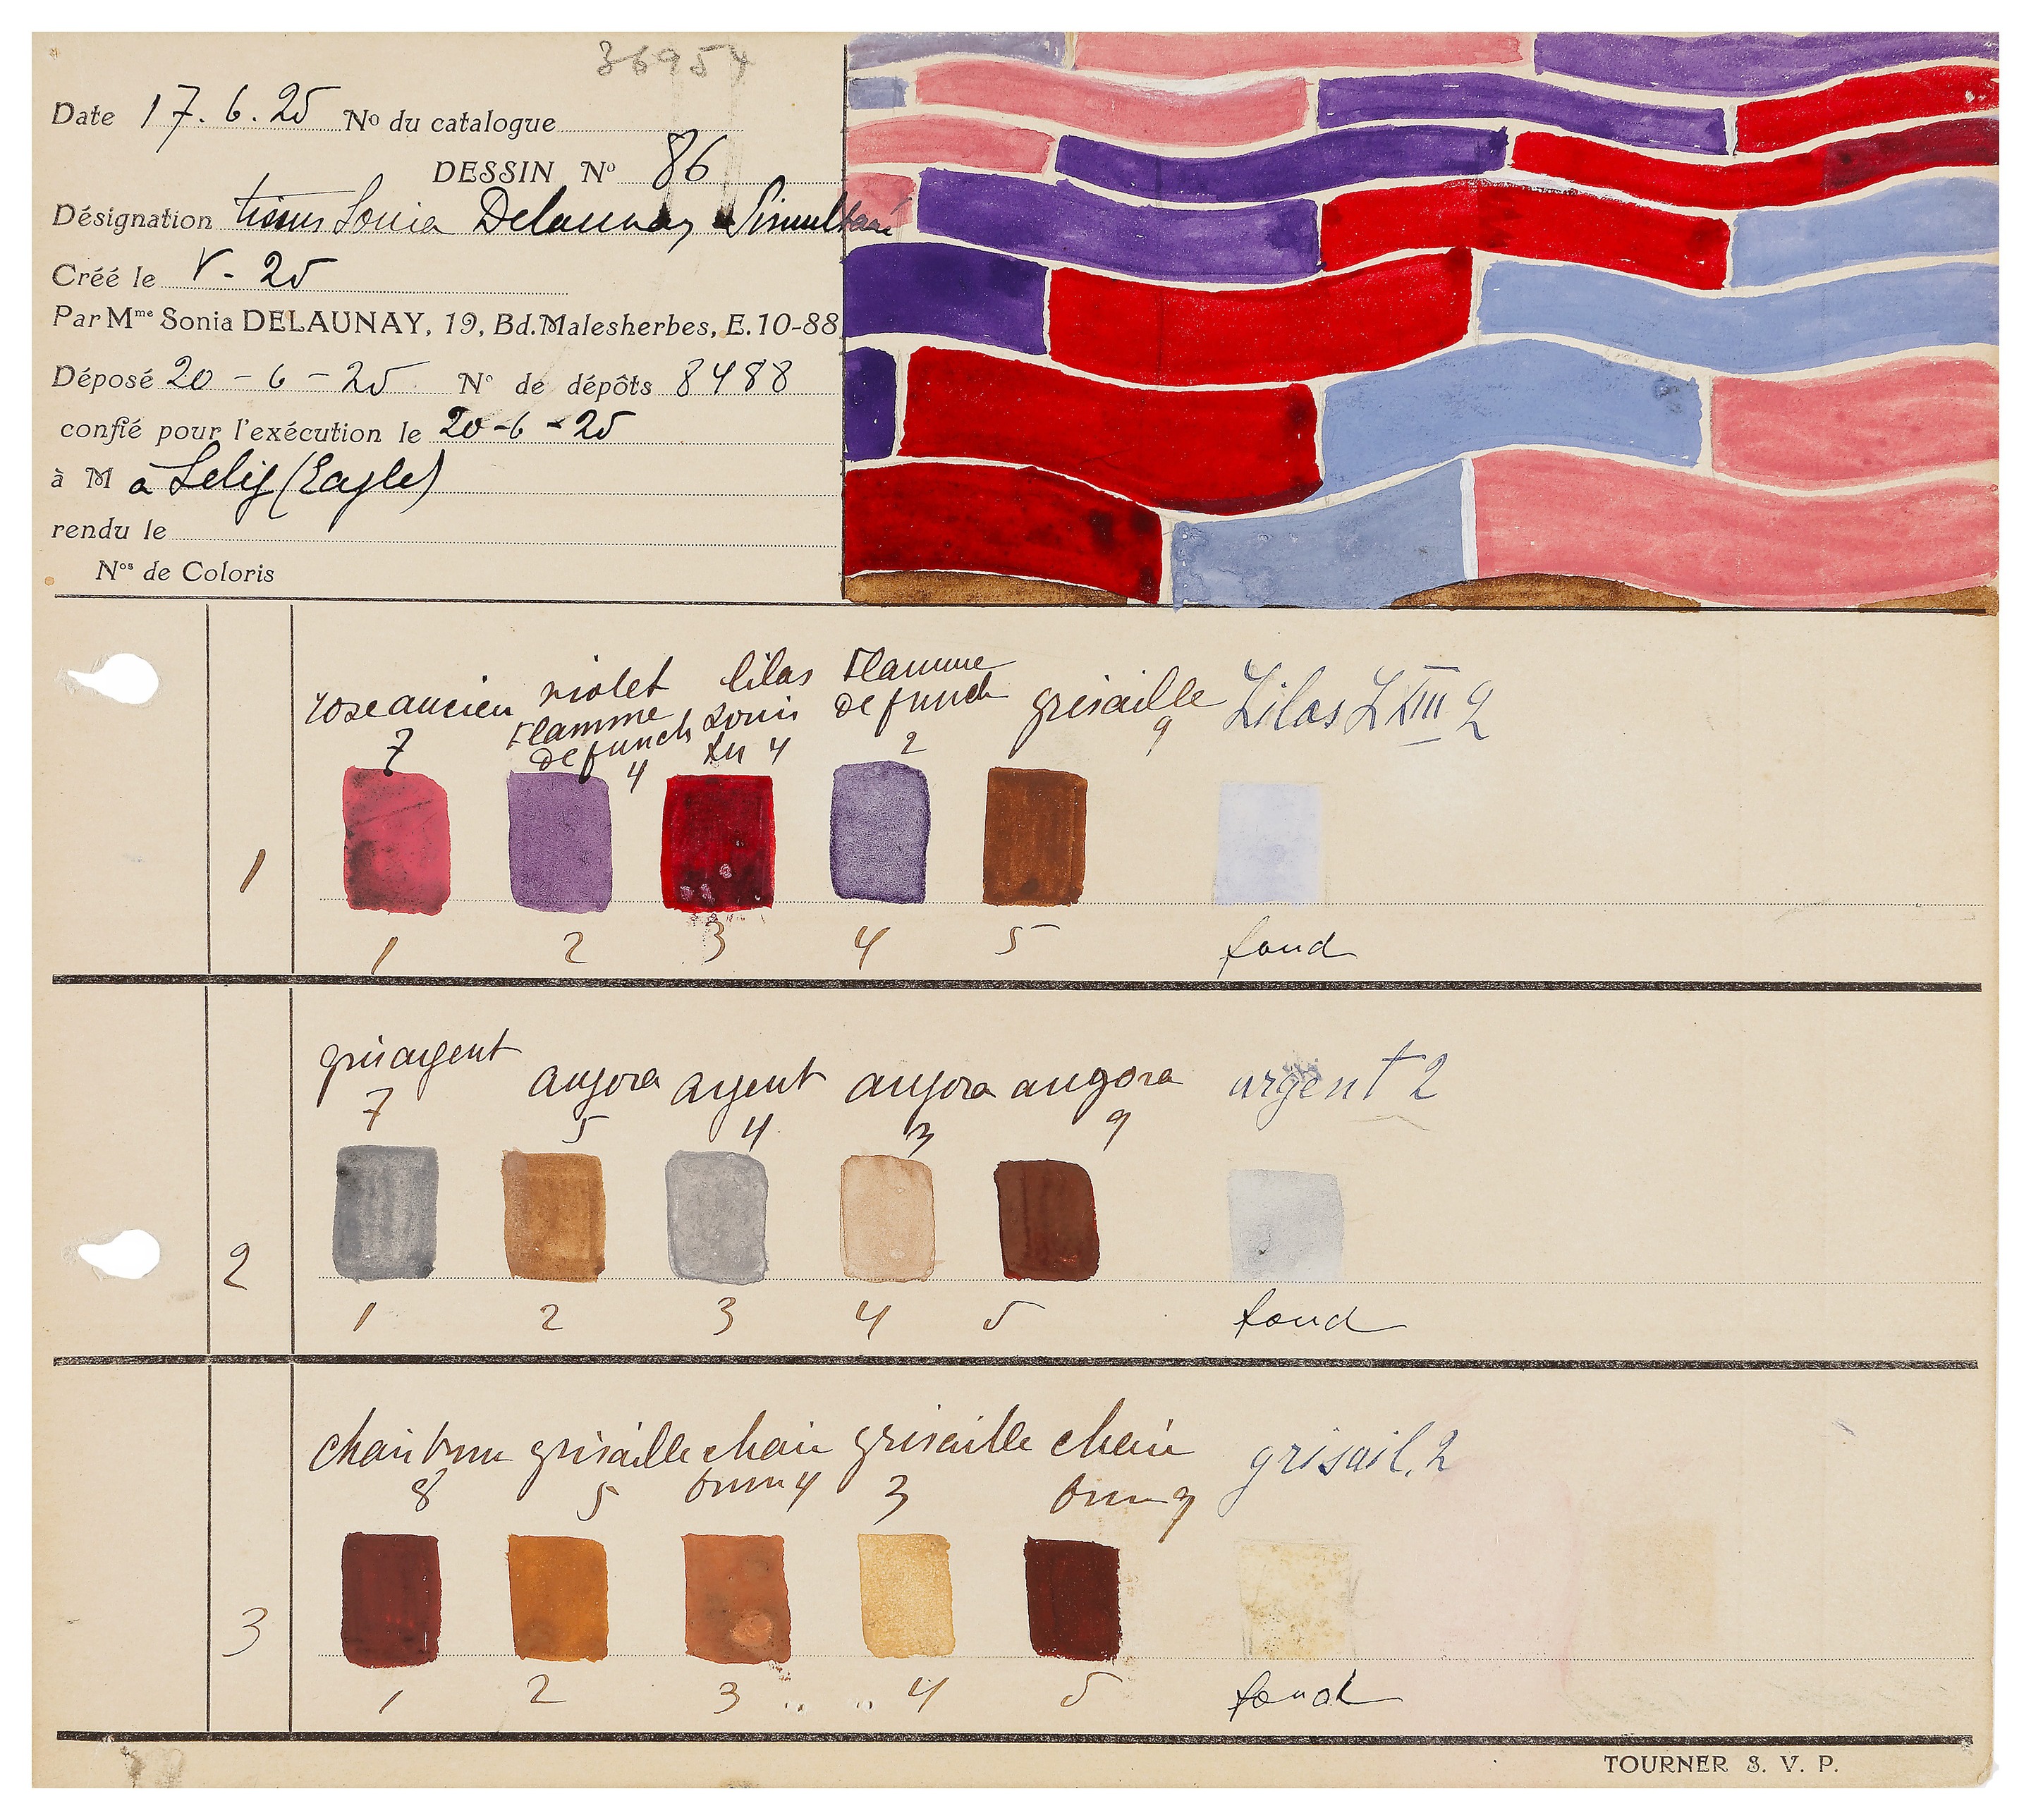 36954
Date 17.6.25 No du catalogue
DESSIN No 86
Désignation tissus Sonia Delaunay Simultané
Créé le V - 25
Par Mme Sonia DELAUNAY, 19, Bd. Malesherbes, E. 10-88
Déposé 20 - 6 - 25 No de dépôts 8488
confié pour l'exécution le 20-6-25
à M à Selig (Eagle)
rendu le
Nos de Coloris
rose ancien 7 violet flamme de punch 4 lilas 4 flamme de punch 2 grisaille 9 Lilas L XIII 2
1
1 2 3 4 5 fond
gris argent 7 angora 5 argent 4 angora 3 angora 9 argent 2
2
1 2 3 4 5 fond
chair brun 8 grisaille 5 chair brun 4 grisaille 3 chair brun 9 grisail. 2
3
1 2 3 4 5 fond
TOURNER S. V. P.